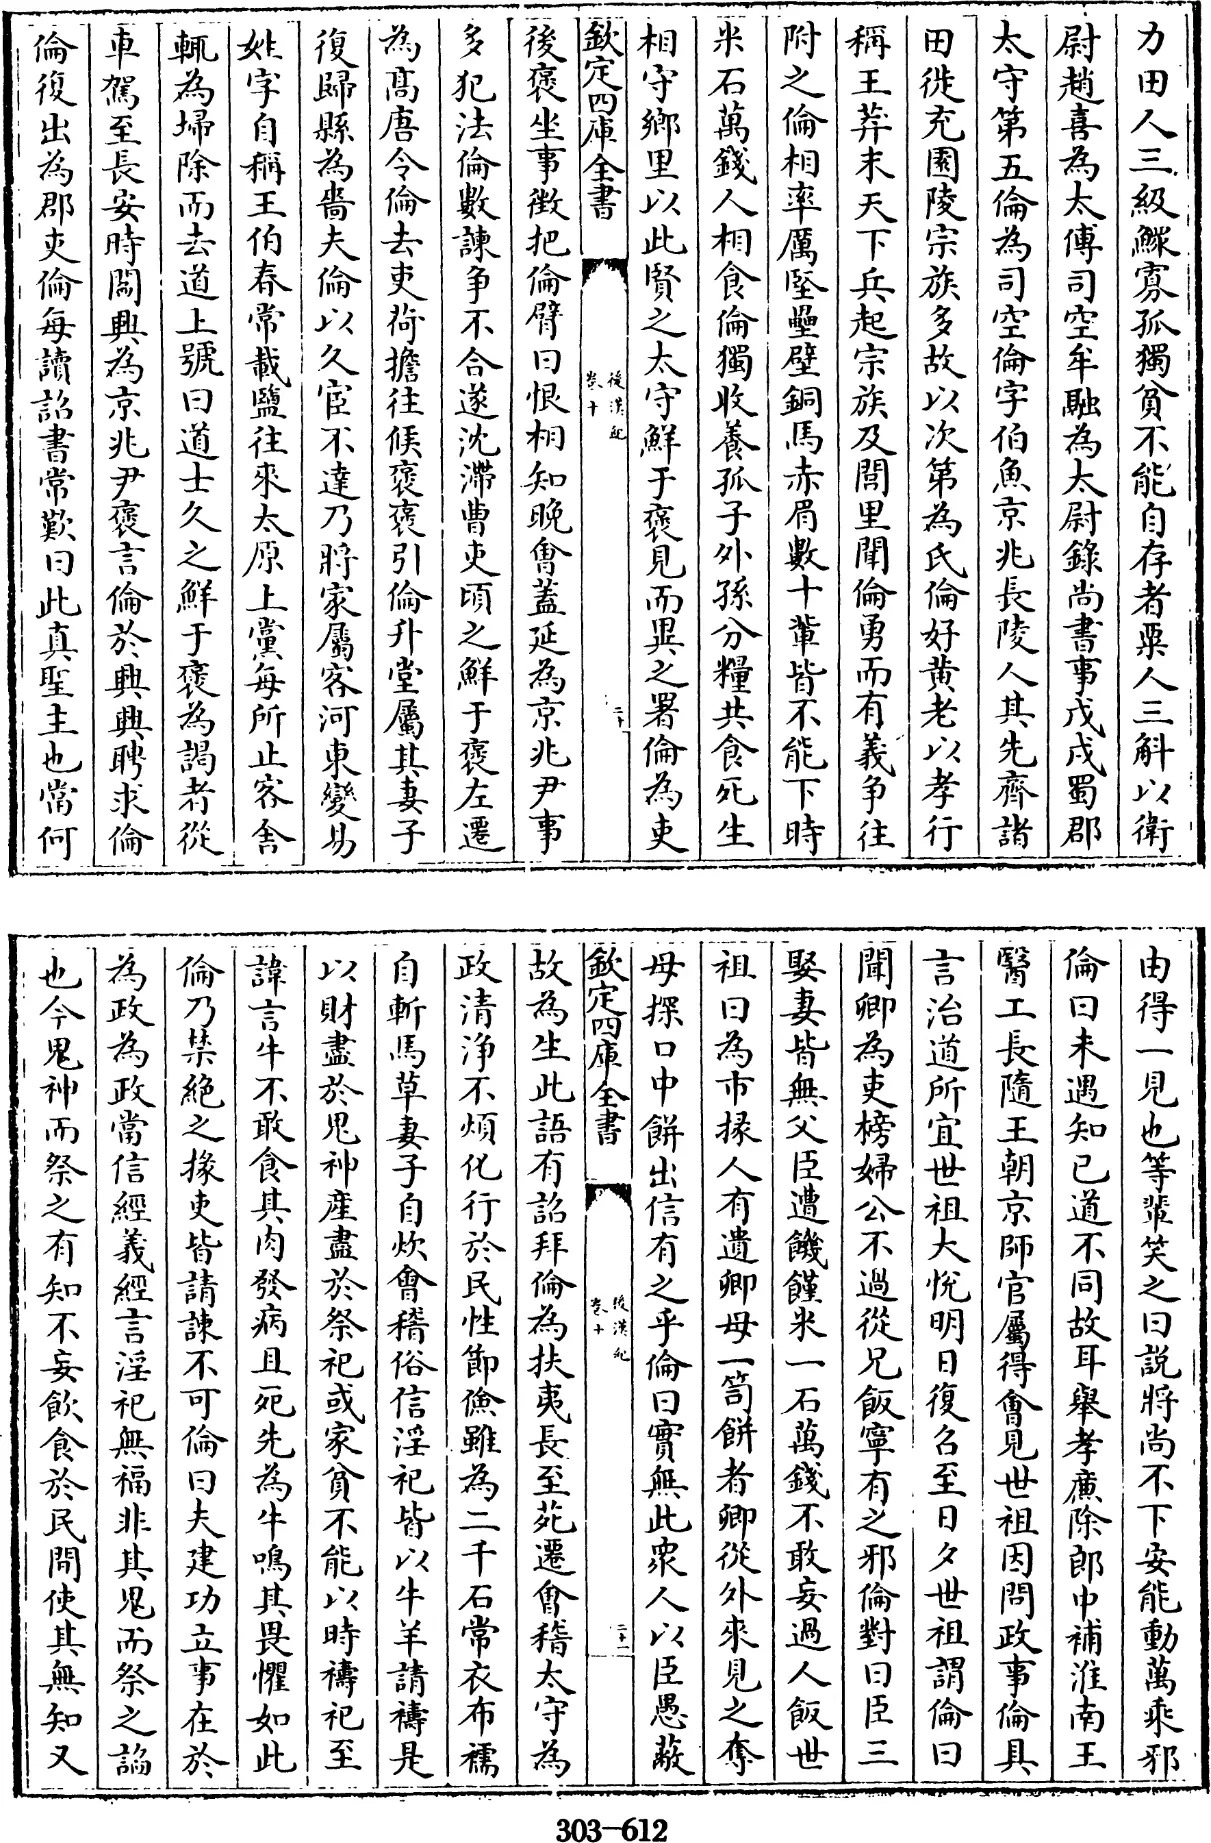 力田人三級鰥寡孤獨貧不能自存者粟人三斛以衛
尉趙喜為太傅司空牟融為太尉錄尚書事戊戌蜀郡
太守第五倫為司空倫字伯魚京兆長陵人其先齊諸
田徙充園陵宗族多故以次第為氏倫好黃老以孝行
稱王莽末天下兵起宗族及閭里聞倫勇而有義爭往
附之倫相率厲堅壘壁銅馬赤眉數十輩皆不能下時
米石萬錢人相食倫獨收養孤子外孫分糧共食死生
相守鄉里以此賢之太守鮮于褒見而異之署倫為吏
欽定四庫全書
後漢紀
卷十
二十
後褒坐事徵把倫臂曰恨相知晚會蓋延為京兆尹事
多犯法倫數諫爭不合遂沈滯曹吏頃之鮮于褒左遷
為高唐令倫去吏荷擔往候褒褒引倫升堂屬其妻子
復歸縣為嗇夫倫以久宦不達乃將家屬客河東變易
姓字自稱王伯春常載鹽往來太原上黨每所止客舍
輒為掃除而去道上號曰道士久之鮮于褒為謁者從
車駕至長安時閻興為京兆尹褒言倫於興興聘求倫
倫復出為郡吏倫每讀詔書常歎曰此真聖主也當何
由得一見也等輩笑之曰說將尚不下安能動萬乘邪
倫曰未遇知己道不同故耳舉孝廉除郎中補淮南王
醫工長隨王朝京師官屬得會見世祖因問政事倫具
言治道所宜世祖大悅明日復召至日夕世祖謂倫曰
聞卿為吏榜婦公不過從兄飯寧有之邪倫對曰臣三
娶妻皆無父臣遭饑饉米一石萬錢不敢妄過人飯世
祖曰為市掾人有遺卿母一笥餅者卿從外來見之奪
母探口中餅出信有之乎倫曰實無此衆人以臣愚蔽
欽定四庫全書
後漢紀
卷十
二十一
故為生此語有詔拜倫為扶夷長至苑遷會稽太守為
政清淨不煩化行於民性節儉雖為二千石常衣布襦
自斬馬草妻子自炊會稽俗信淫祀皆以牛羊請禱是
以財盡於鬼神產盡於祭祀或家貧不能以時禱祀至
諱言牛不敢食其肉發病且死先為牛鳴其畏懼如此
倫乃禁絕之掾吏皆請諫不可倫曰夫建功立事在於
為政為政當信經義經言淫祀無福非其鬼而祭之諂
也今鬼神而祭之有知不妄飲食於民間使其無知又
303-612